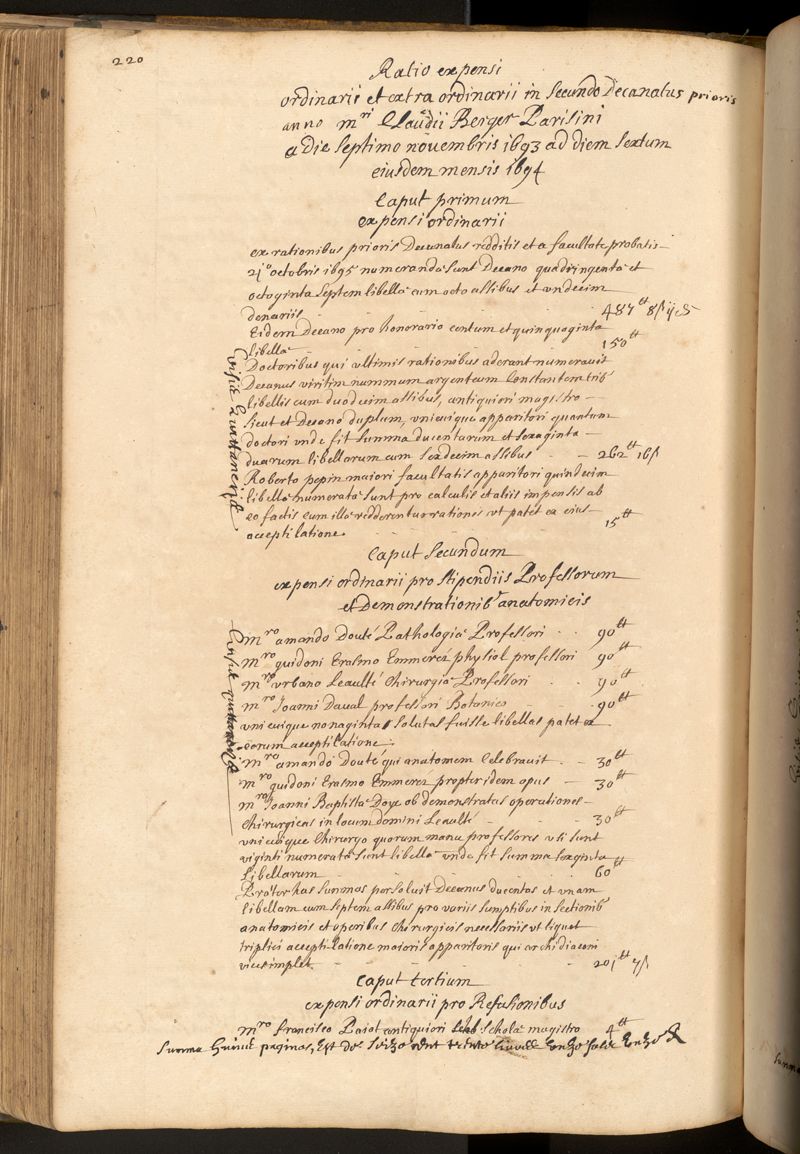 220
Ratio expensi
ordinarii et extra ordinarii in secundo Decanatus prioris
anno mri Claudii Berger Parisini
a die septimo novembris 1693 ad diem sextum
eiusdem mensis 1694
Caput primum
expensi ordinarii
ex rationibus prioris Decanatus redditis et a facultate probatis
21o octobris 1695 numeranda sunt Decano quadringenta et
octoginta septem libellæ cum octo assibus et undecim
denariis - - - 487tt 8ſ
Eidem Decano pro honorario centum et quinquaginta
libellæ - - - 150tt
Doctoribus qui ultimis rationibus aderant numeravit
Decanus viritim nummum argenteum constantem trib'
libellis cum duodecim assibus, antiquiori magistro
sicut et Decano duplum, unicuique apparitori quantum
doctori unde fit summa ducentarum et sexaginta
duarum libellarum cum sexdecim assibus - - 262tt 16ſ
Roberto pepin maiori facultatis apparitori quindecim
libellæ numeratæ sunt pro calculis et aliis impensis ab
eo factis cum illæ redderentur rationes ut patet ex eius
acceptilatione - - - 15tt
Caput secundum
expensi ordinarii pro stipendiis Professorum
et Demonstrationib' anatomicis
mro amando Douté Pathologiæ Professori - - 90tt
mro guidoni Erasmo Emmerez physiol professori 90tt
mro urbano Leaulté Chirurgiæ Professori - 90tt
mro Joanni Daval professori Botanico - 90tt
unicuique nonaginta solutas fuisse libellas patet ex
eorum acceptilatione
mro amando Douté qui anatomem celebravit - - 30tt
mro guidoni Erasmo Emmerez propter idem opus - 30tt
mro Joanni Baptista Doye ob demonstratas operationes
Chirurgicas in locum domini Leaulté - - 30tt
unicuique Chirurgo quorum manu professores usi sunt
viginti numeratæ sunt libellæ unde fit summa sexginta
Libellarum - - - 60tt
Præter has summas persolvit Decanus ducentas et unam
libellam cum septem assibus pro variis sumptibus in sectionib'
anatomicis et operibus chirurgicis necessariis ut liquet
triplici acceptilatione maioris apparitoris qui archidiaconi
vices implet - - - 201tt 7ſ
Caput tertium
expensi ordinarii pro Refusionibus
mro francisco Paiot antiquiori scholæ magistro 4tt
Summa huius paginæ, Est de